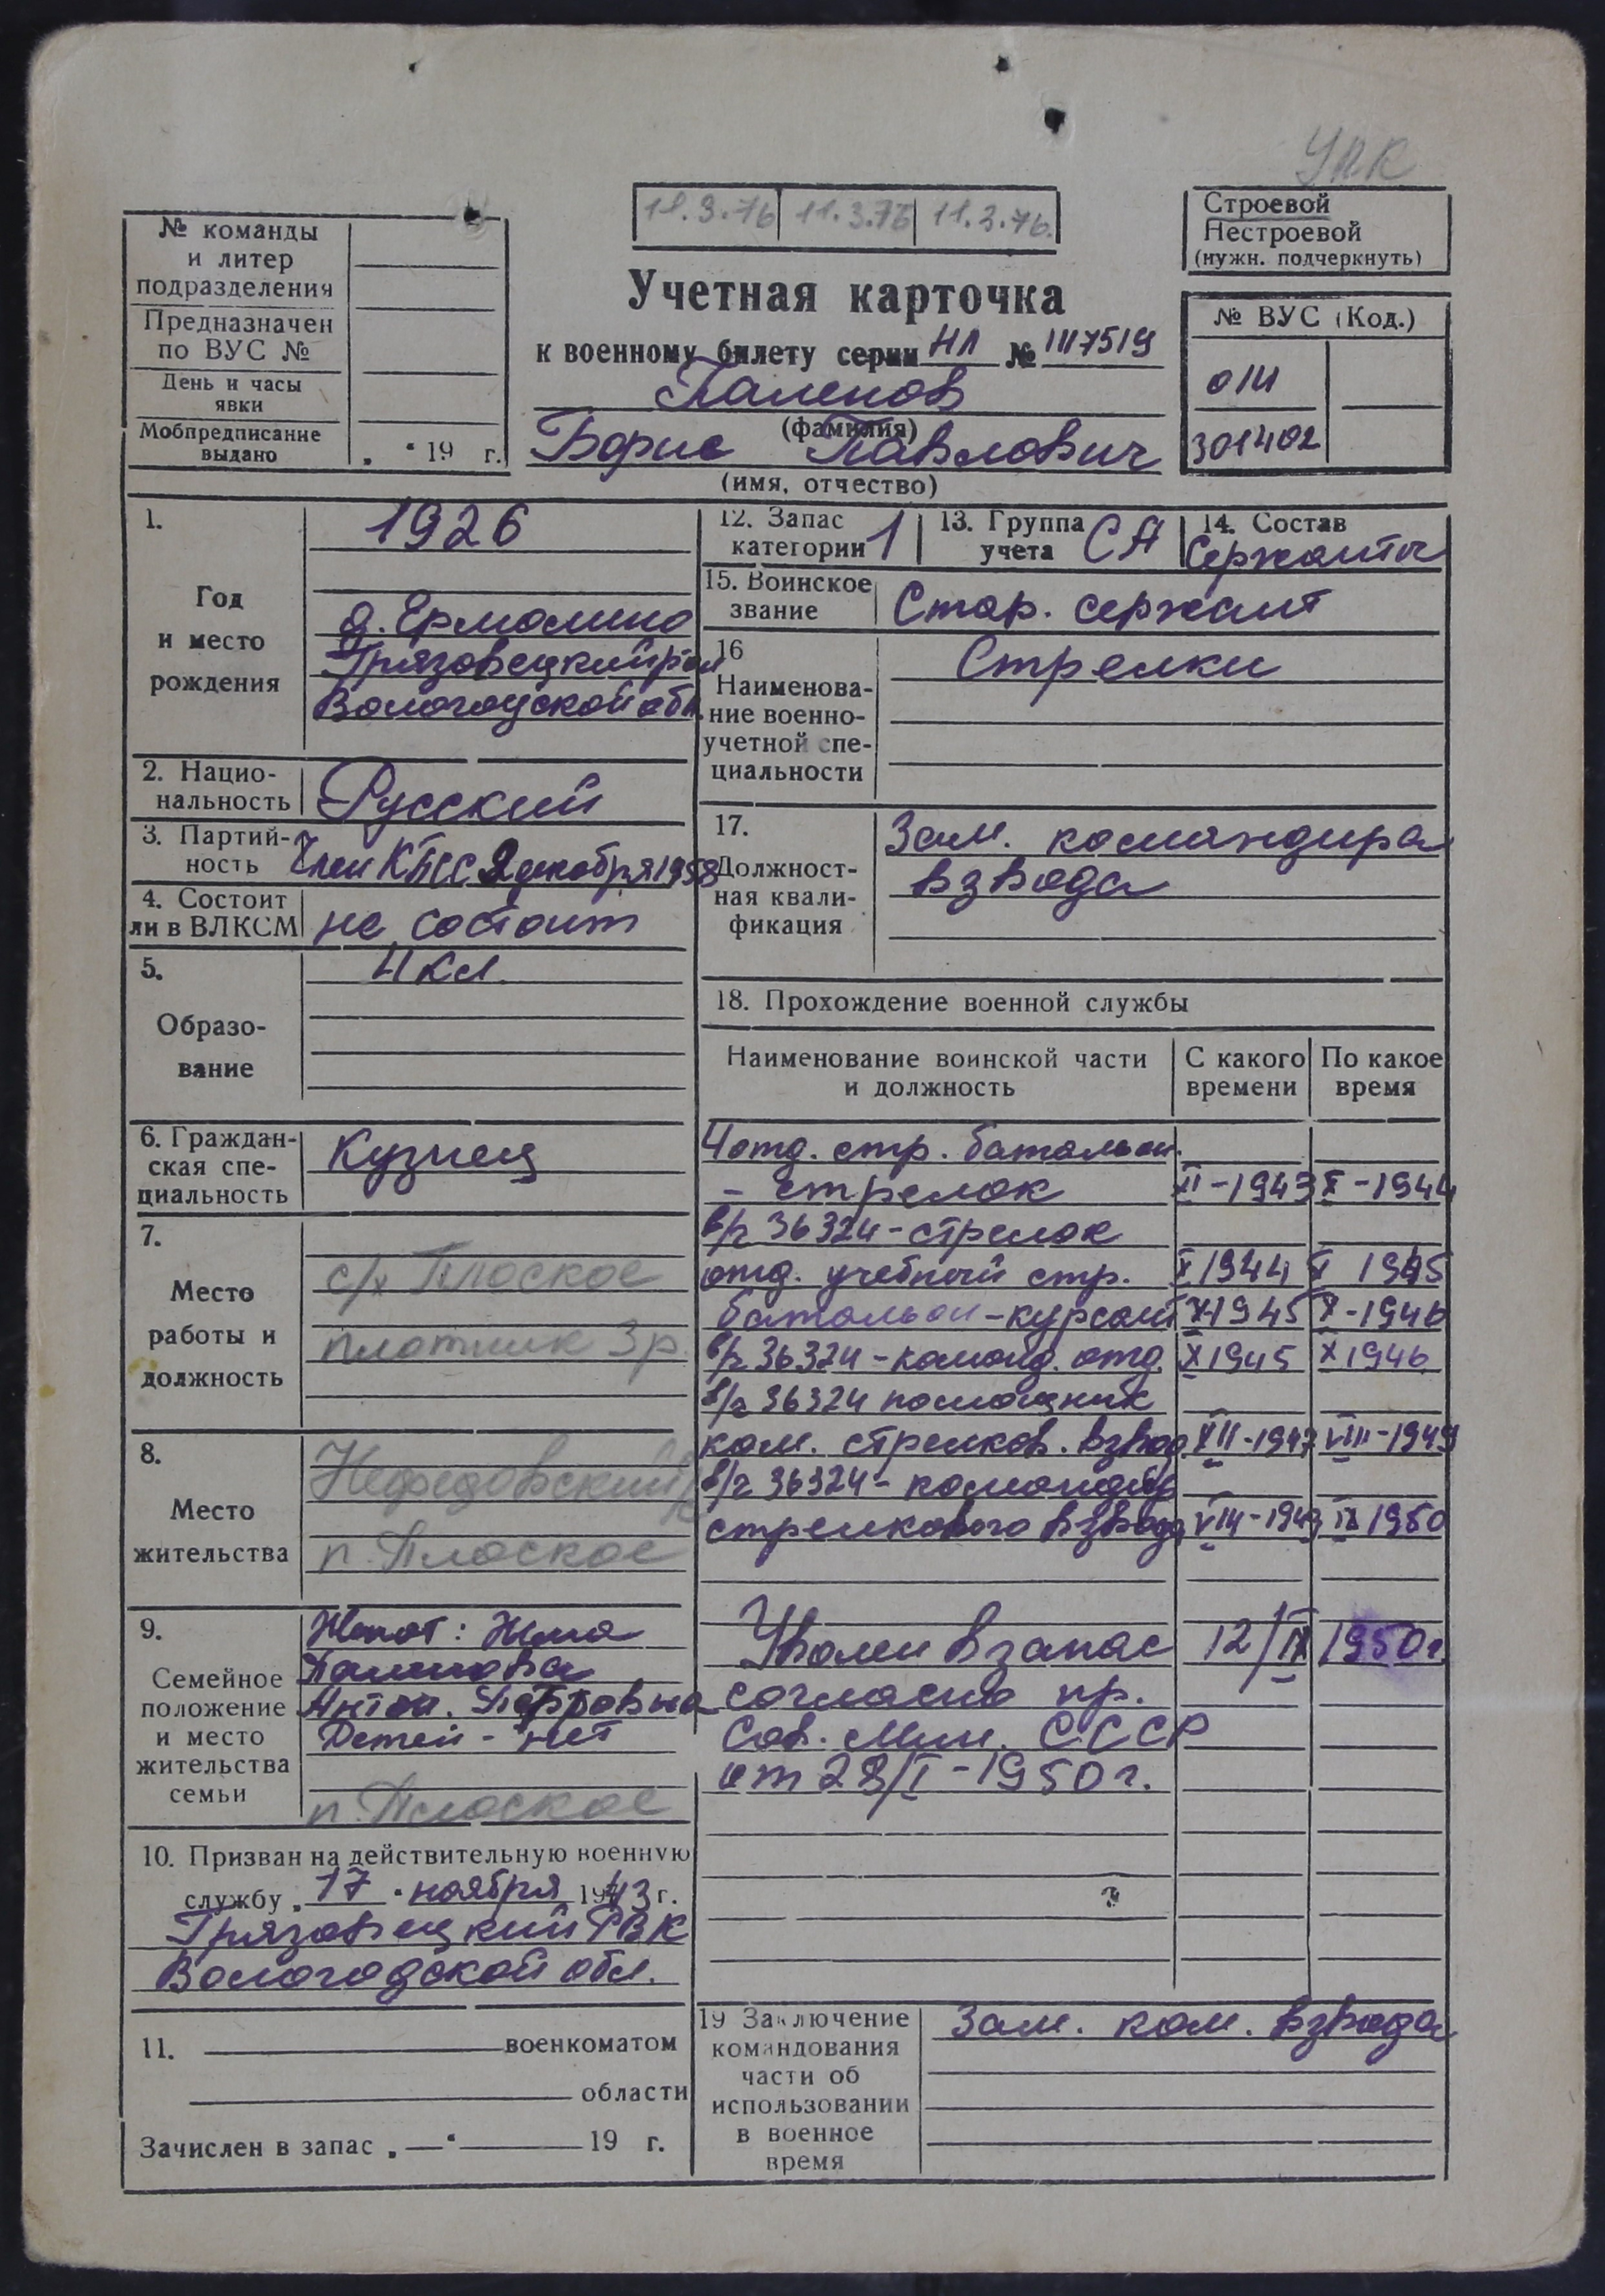 УПК
11.3.76 11.3.76 11.3.76.
Строевой
Нестроевой
(нужн. подчеркнуть)
№ команды
и литер
подразделения
Предназначен
по ВУС №
День и часы
явки
Мобпредписание
выдано „ “ 19 г.
Учетная карточка
к военному билету серии НЛ № 1117519
Паленов
(фамилия)
Борис Павлович
(имя, отчество)
№ ВУС (Код.)
014
301402
1.
Год
и место
рождения
1926
д. Ермолино
Грязовецкий р-он
Вологодской обл.
2. Нацио-
нальность
Русский
3. Партий-
ность
Член КПСС 2 декабря 1958
4. Состоит
ли в ВЛКСМ
не состоит
5.
Образо-
вание
4 кл.
6. Граждан-
ская спе-
циальность
Кузнец
7.
Место
работы и
должность
с/х Плоское
плотник 3 р.
8.
Место
жительства
Нефедовский
п. Плоское
9.
Семейное
положение
и место
жительства
семьи
Женат: Жена
Паленова
Антон. Петровна
Детей - нет
п. Плоское
10. Призван на действительную военную
службу „ 17 “ ноября 1943 г.
Грязовецкий РВК
Вологодской обл.
11. военкоматом
области
Зачислен в запас „ — “ 19 г.
12. Запас
категории 1
13. Группа
учета СА
14. Состав
Сержанты
15. Воинское
звание
Стар. сержант
16
Наименова-
ние военно-
учетной спе-
циальности
Стрелки
17.
Должност-
ная квали-
фикация
Зам. командира
взвода
18. Прохождение военной службы
Наименование воинской части
и должность
С какого
времени
По какое
время
4 отд. стр. батальон.
- стрелок XII-1943 X-1944
в/ч 36324 - стрелок
отд. учебный стр. X 1944 X 1945
батальон - курсант X-1945 X-1946
в/ч 36324 - команд. отд. X 1945 X 1946
в/ч 36324 помощник
ком. стрелков. взвод XII-1947 VIII-1949
в/ч 36324 - командир
стрелкового взвода VIII-1949 IX 1950
Уволен в запас 12/IX 1950 г.
согласно пр.
Сов. Мин. СССР
от 28/I-1950 г.
19 Заключение
командования
части об
использовании
в военное
время
Зам. ком. взвода